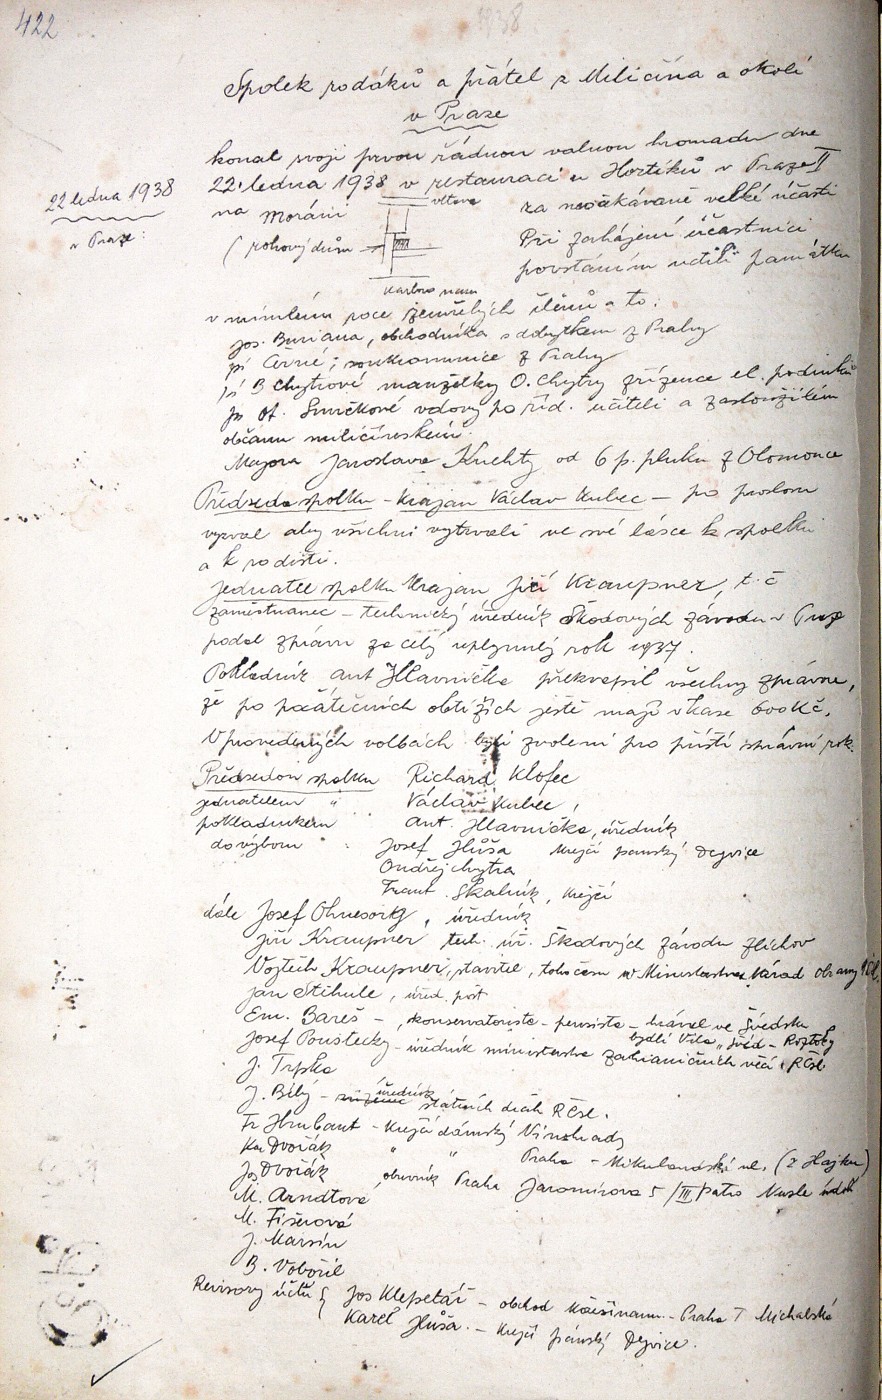 422
1938
Spolek rodáků a přátel z Miličína a okolí
v Praze
konal svoji prvou řádnou valnou hromadu dne
22 ledna 1938
v Praze:
22. ledna 1938 v restauraci u Hortíků v Praze II
na Moráni
vltava
za neočakávaně velké účasti
(rohový dům
Při zahájení účastníci
povstáním uctili památku
Karlovo nám
v minulém roce zemřelých členů a to:
Jos. Buriana, obchodníka s dobytkem z Prahy
pí Černé, soukromnice z Prahy
pí B Chytrové manželky O. Chytry zřízence el. podniků
pí Smičkové vdovy po říd. učiteli a zasloužilém
občanu miličínském.
Majora Jaroslava Kuchty od 6 p. pluku z Olomouce
Předseda spolku - krajan Václav Kubec - po proslovu
vyzval aby všichni vytrvali ve své lásce k spolku
a k rodišti.
Jednatel spolku krajan Jiří Kraupner, t. č
zaměstnanec - technický úředník Škodových závodů v Praze
podal zprávu za celý uplynulý rok 1937.
Pokladník Ant Hlavnička překvapil všechny zprávou,
že po počátečních obtížích ještě mají v kase 600 Kč.
V provedených volbách byli zvoleni pro příští správní rok.
Předsedou spolku Richard Klofec
jednatelem " Václav Kubec,
pokladníkem Ant. Hlavnička, úředník
do výboru Josef Hůša Krejčí pánský Dejvice
Ondřej Chytra
Frant. Skalník, Krejčí
dále Josef Ohnesorg, úředník
Jiří Kraupner tech. úř. Škodových závodů Zlíchov
Vojtěch Kraupner, stavitel, toho času v Ministerstvu Národ obrany
Jan Stibule, úřed. pošt
Em. Bareš -, konservatorista - pensista - hrával ve Švédsku
bydlí Vila "Švéd - Roztoky
Josef Poustecký - úředník ministerstva zahraničních věcí RČsl
J. Trpka
J. Bílý - úředník státních drah RČsl.
Fr Hrubant - Krejčí dámský Vinohrady
Kar Dvořák " " Praha - Mikulandská ul. (z Hajku)
Jos Dvořák, obuvník Praha Jaromírova 5 / III patro Nusle údolí
M. Arndtová
M. Fišerová
J. Marsín
B. Vobořil
Revisory účtů { Jos Klepetář - obchod kožešinami - Praha I Michalská
Karel Hůša. - Krejčí pánský Dejvice.